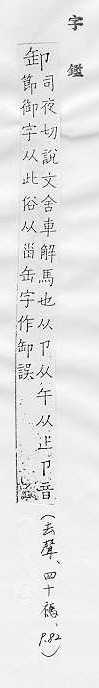 字鑑
卸司夜切說文舍車解馬也从卩从午从止卩音
節御字从此俗从𦈢缶字作卸誤
(去聲、四十禡、P.82)